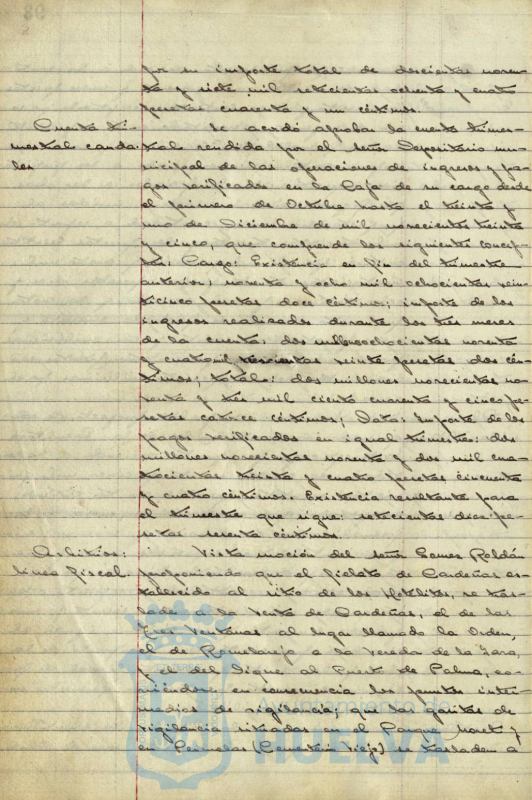 por su importe total de doscientas noven-
ta y siete mil setecientas ochenta y cuatro
pesetas cuarenta y un céntimos.
Cuenta tri-
mestral cauda-
les
Se acordó aprobar la cuenta trimes-
tral rendida por el señor Depositario mu-
nicipal de las operaciones de ingresos y pa-
gos verificados en la Caja de su cargo desde
el primero de Octubre hasta el treinta y
uno de Diciembre de mil novecientos treinta
y cinco, que comprende los siguientes concep-
tos: Cargo: Existencia en fin del trimestre
anterior; noventa y ocho mil ochocientas vein-
ticinco pesetas doce céntimos; importe de los
ingresos realizados durante los tres meses
de la cuenta: dos millones ochocientas noventa
y cuatro mil trescientas veinte pesetas dos cén-
timos; total: dos millones novecientas no-
venta y tres mil ciento cuarenta y cinco pe-
setas catorce céntimos; Data: Importe de los
pagos verificados en igual trimestre: dos
millones novecientas noventa y dos mil cua-
trocientas treinta y cuatro pesetas cincuenta
y cuatro céntimos. Existencia resultante para
el trimestre que sigue: setecientas diez pe-
setas sesenta céntimos.
Arbitrios:
Línea fiscal.
Vista moción del señor Gomez Roldán
proponiendo que el fielato de Cardeñas es-
tablecido al sitio de los Hotelitos, se tras-
lade a la Venta de Cardeñas, el de las
Tres Ventanas al lugar llamado la Orden,
el de a la Vereda de la
y el del Dique al Puerto de Palma, co-
rriéndose en consecuencia los puntos inter-
medios de vigilancia; que las garitas de
vigilancia situadas en el Parque Moret y
en (Cementerio Viejo) se trasladen a
Ayuntamiento de
HUELVA